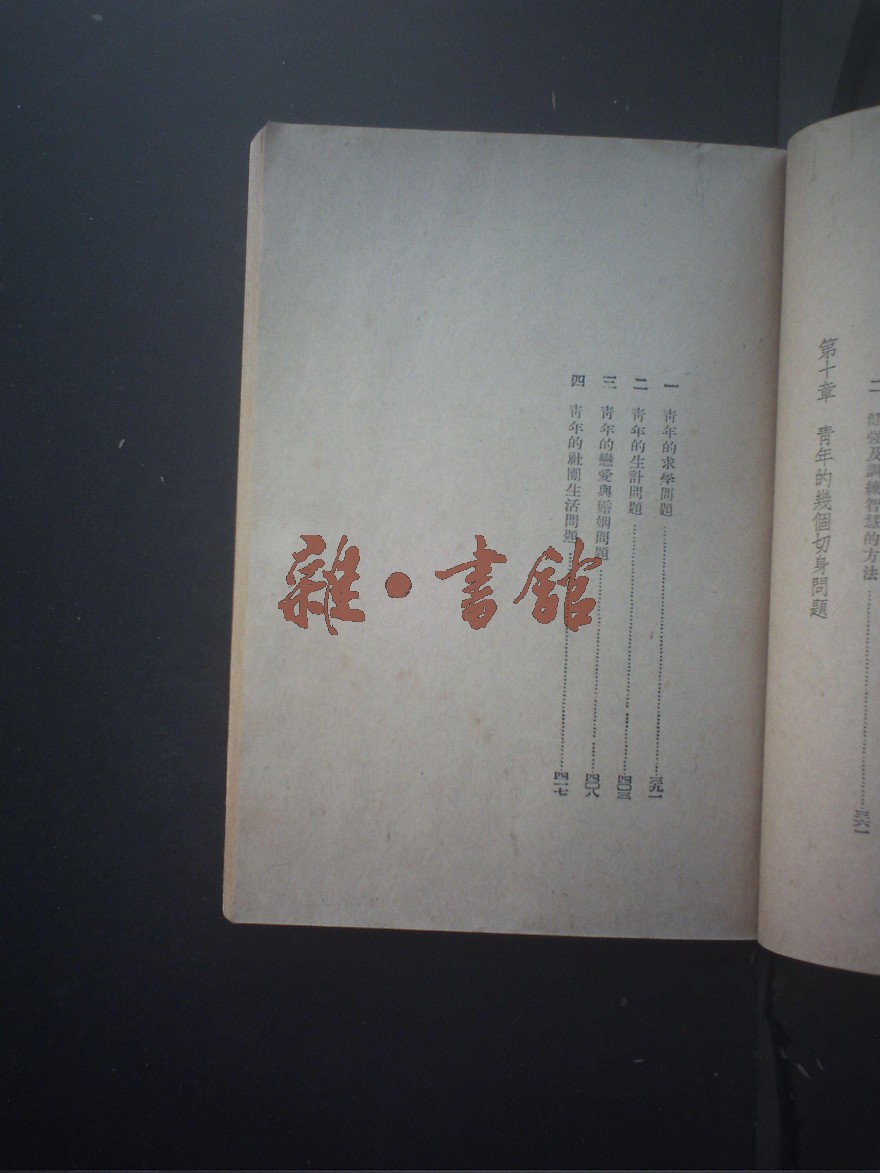 二 鍛強及訓練智慧的方法……三六一
第十章 青年的幾個切身問題
一 青年的求學問題……三九一
二 青年的生計問題……四〇三
三 青年的戀愛與婚姻問題……四〇八
四 青年的社團生活問題……四一七
雜・書館